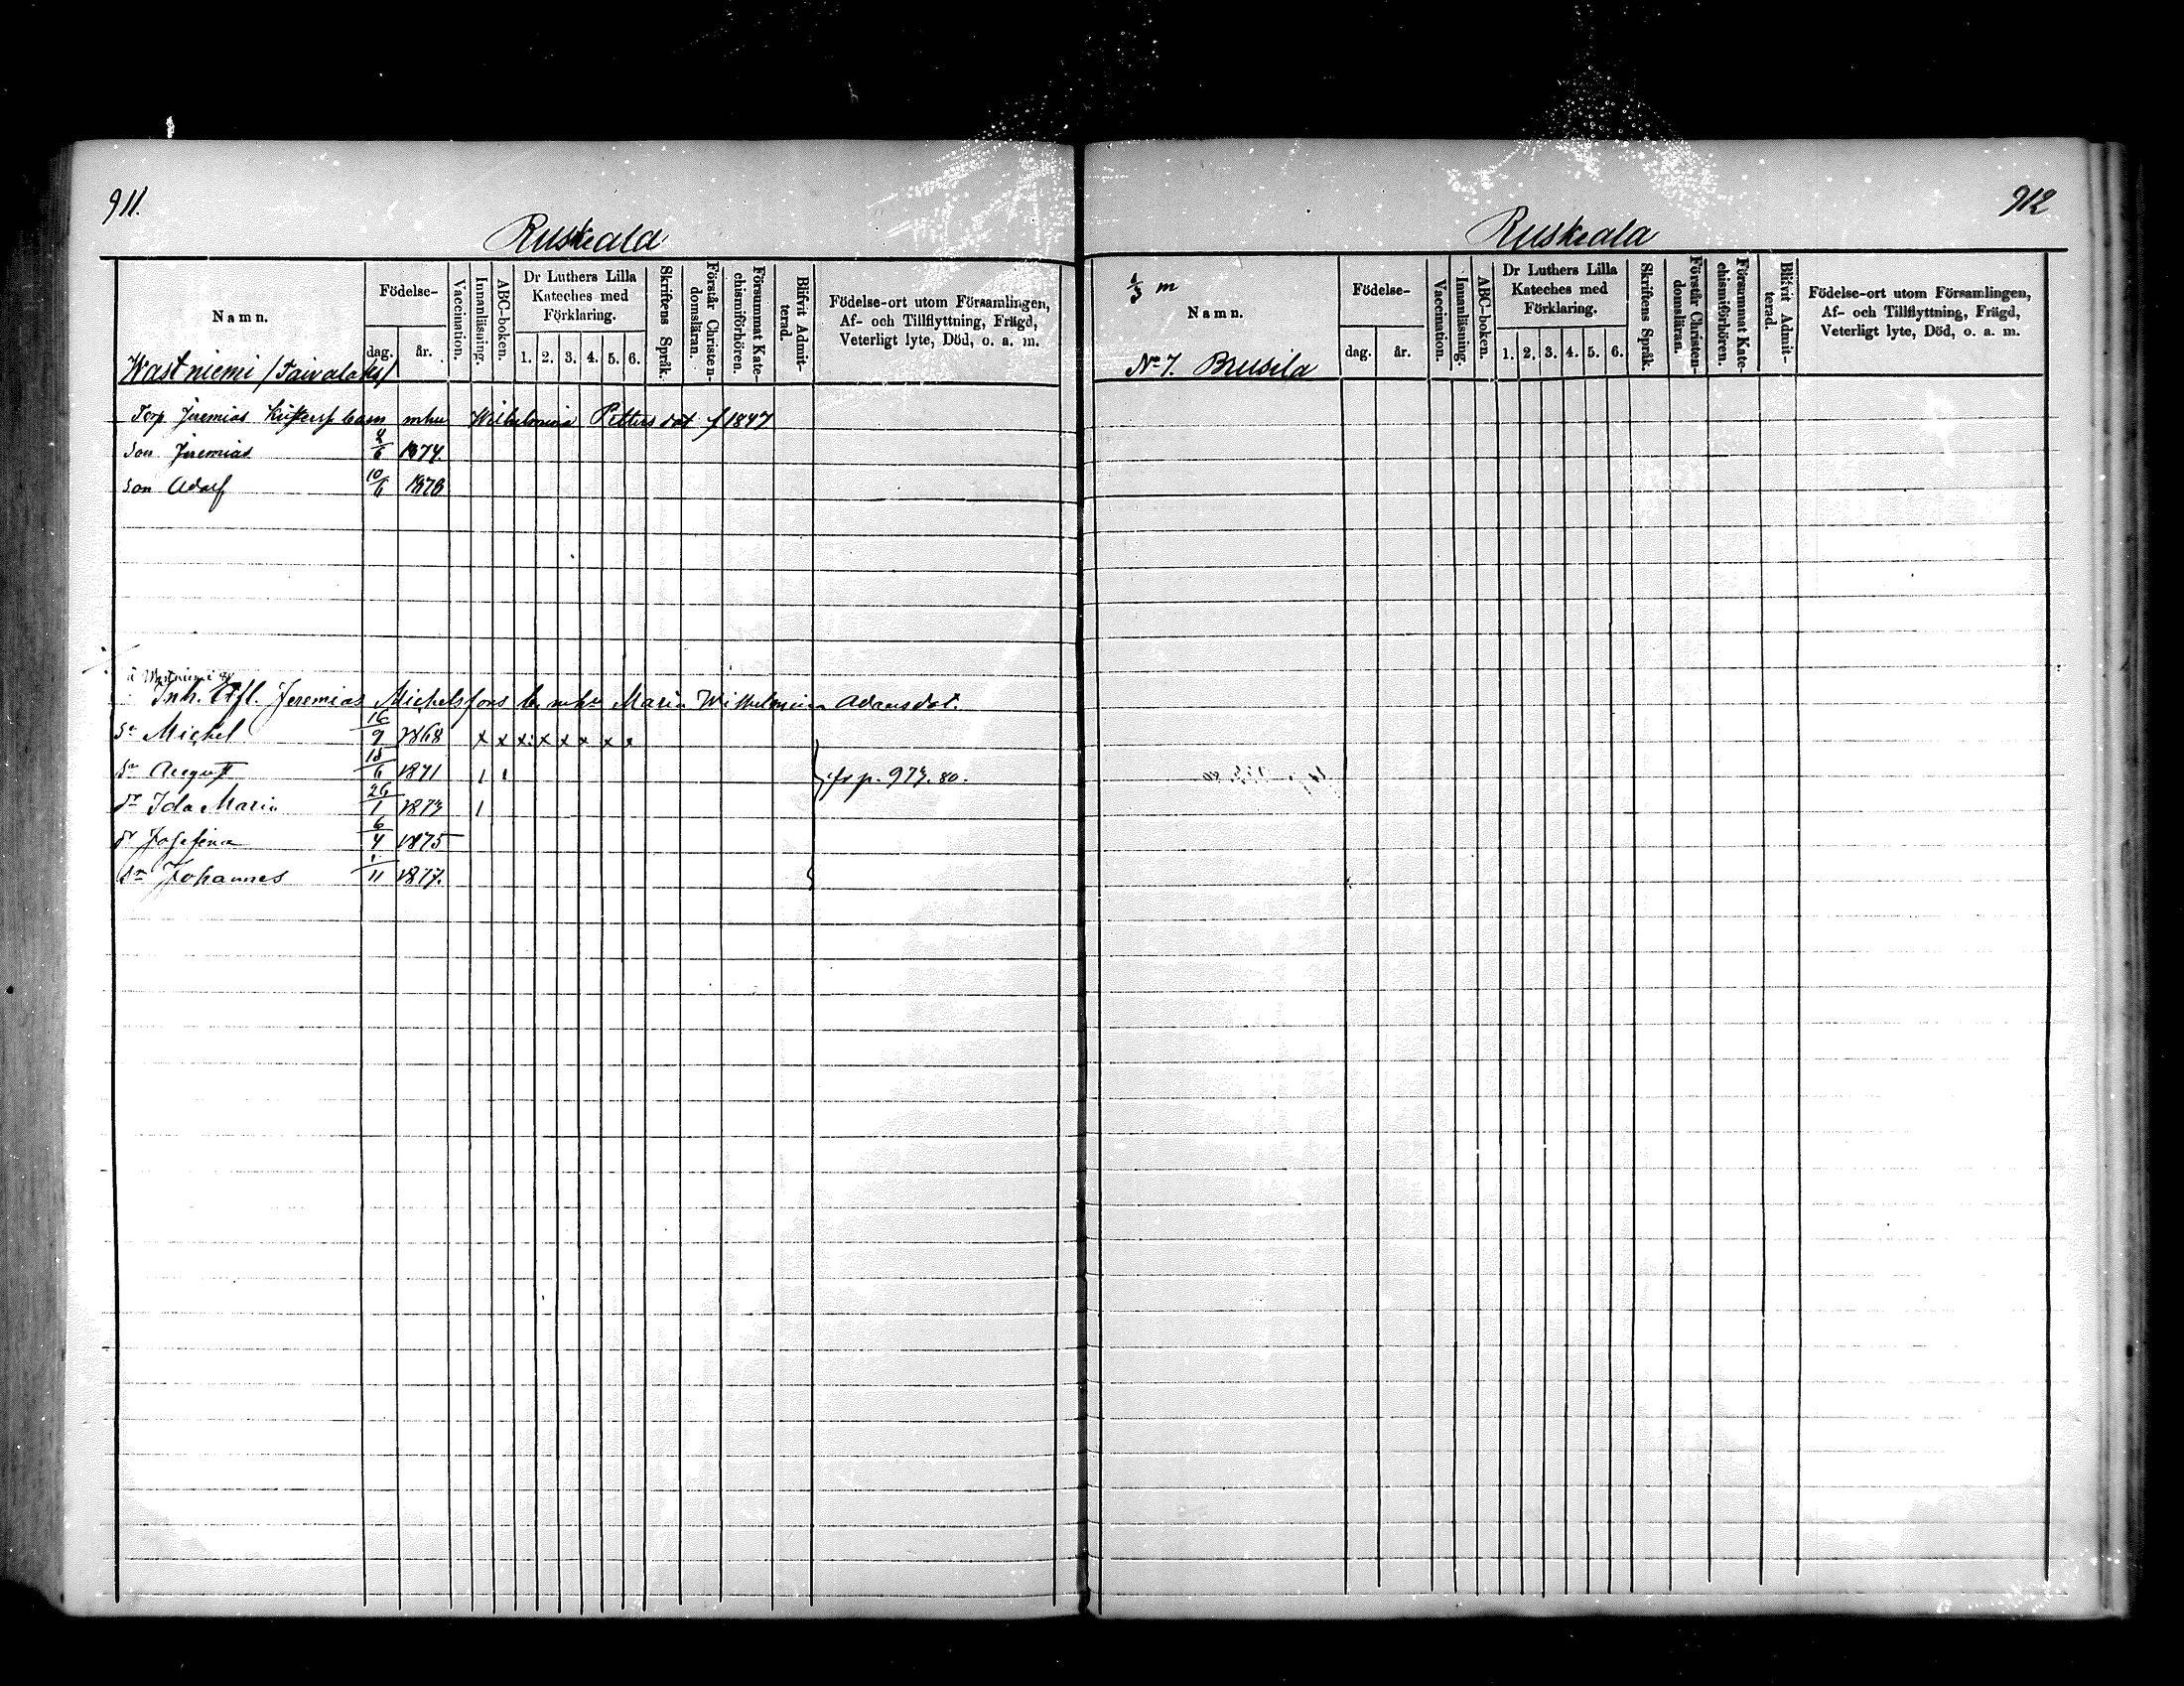 911.
Ruskeala
Namn.
Födelse-
dag.
år.
Vaccination.
Innanläsning.
ABC-boken.
Dr Luthers Lilla
Kateches med
Förklaring.
1. 2. 3. 4. 5. 6.
Skriftens Språk.
Förstår Christen-
domsläran.
Försummat Kate-
chismiförhören.
Blifvit Admit-
terad.
Födelse-ort utom Församlingen,
Af- och Tillflyttning, Frägd,
Veterligt lyte, Död, o. a. m.
Wastniemi /
Torp Jeremias barn mhu Wilhelmina Petters dot f 1847
Son Jeremias 1874.
son Adolf 10/6 1878
Inh. Afl. Jeremias Michelsfons b. mhu Maria Wilhelmina Adamsdot.
Sn Michel 16/9 1868 x x x x x x x x
Sn August 15/6 1871 1 1 fr p. 973. 80.
dr Ida Maria 26/1 1873 1
dr Josefina 6/4 1875
sn Johannes 1/11 1877.
912
Ruskeala
1/3 m
Namn.
No 7. Brusila
Födelse-
dag.
år.
Vaccination.
Innanläsning.
ABC-boken.
Dr Luthers Lilla
Kateches med
Förklaring.
1. 2. 3. 4. 5. 6.
Skriftens Språk.
Förstår Christen-
domsläran.
Försummat Kate-
chismiförhören.
Blifvit Admit-
terad.
Födelse-ort utom Församlingen,
Af- och Tillflyttning, Frägd,
Veterligt lyte, Död, o. a. m.